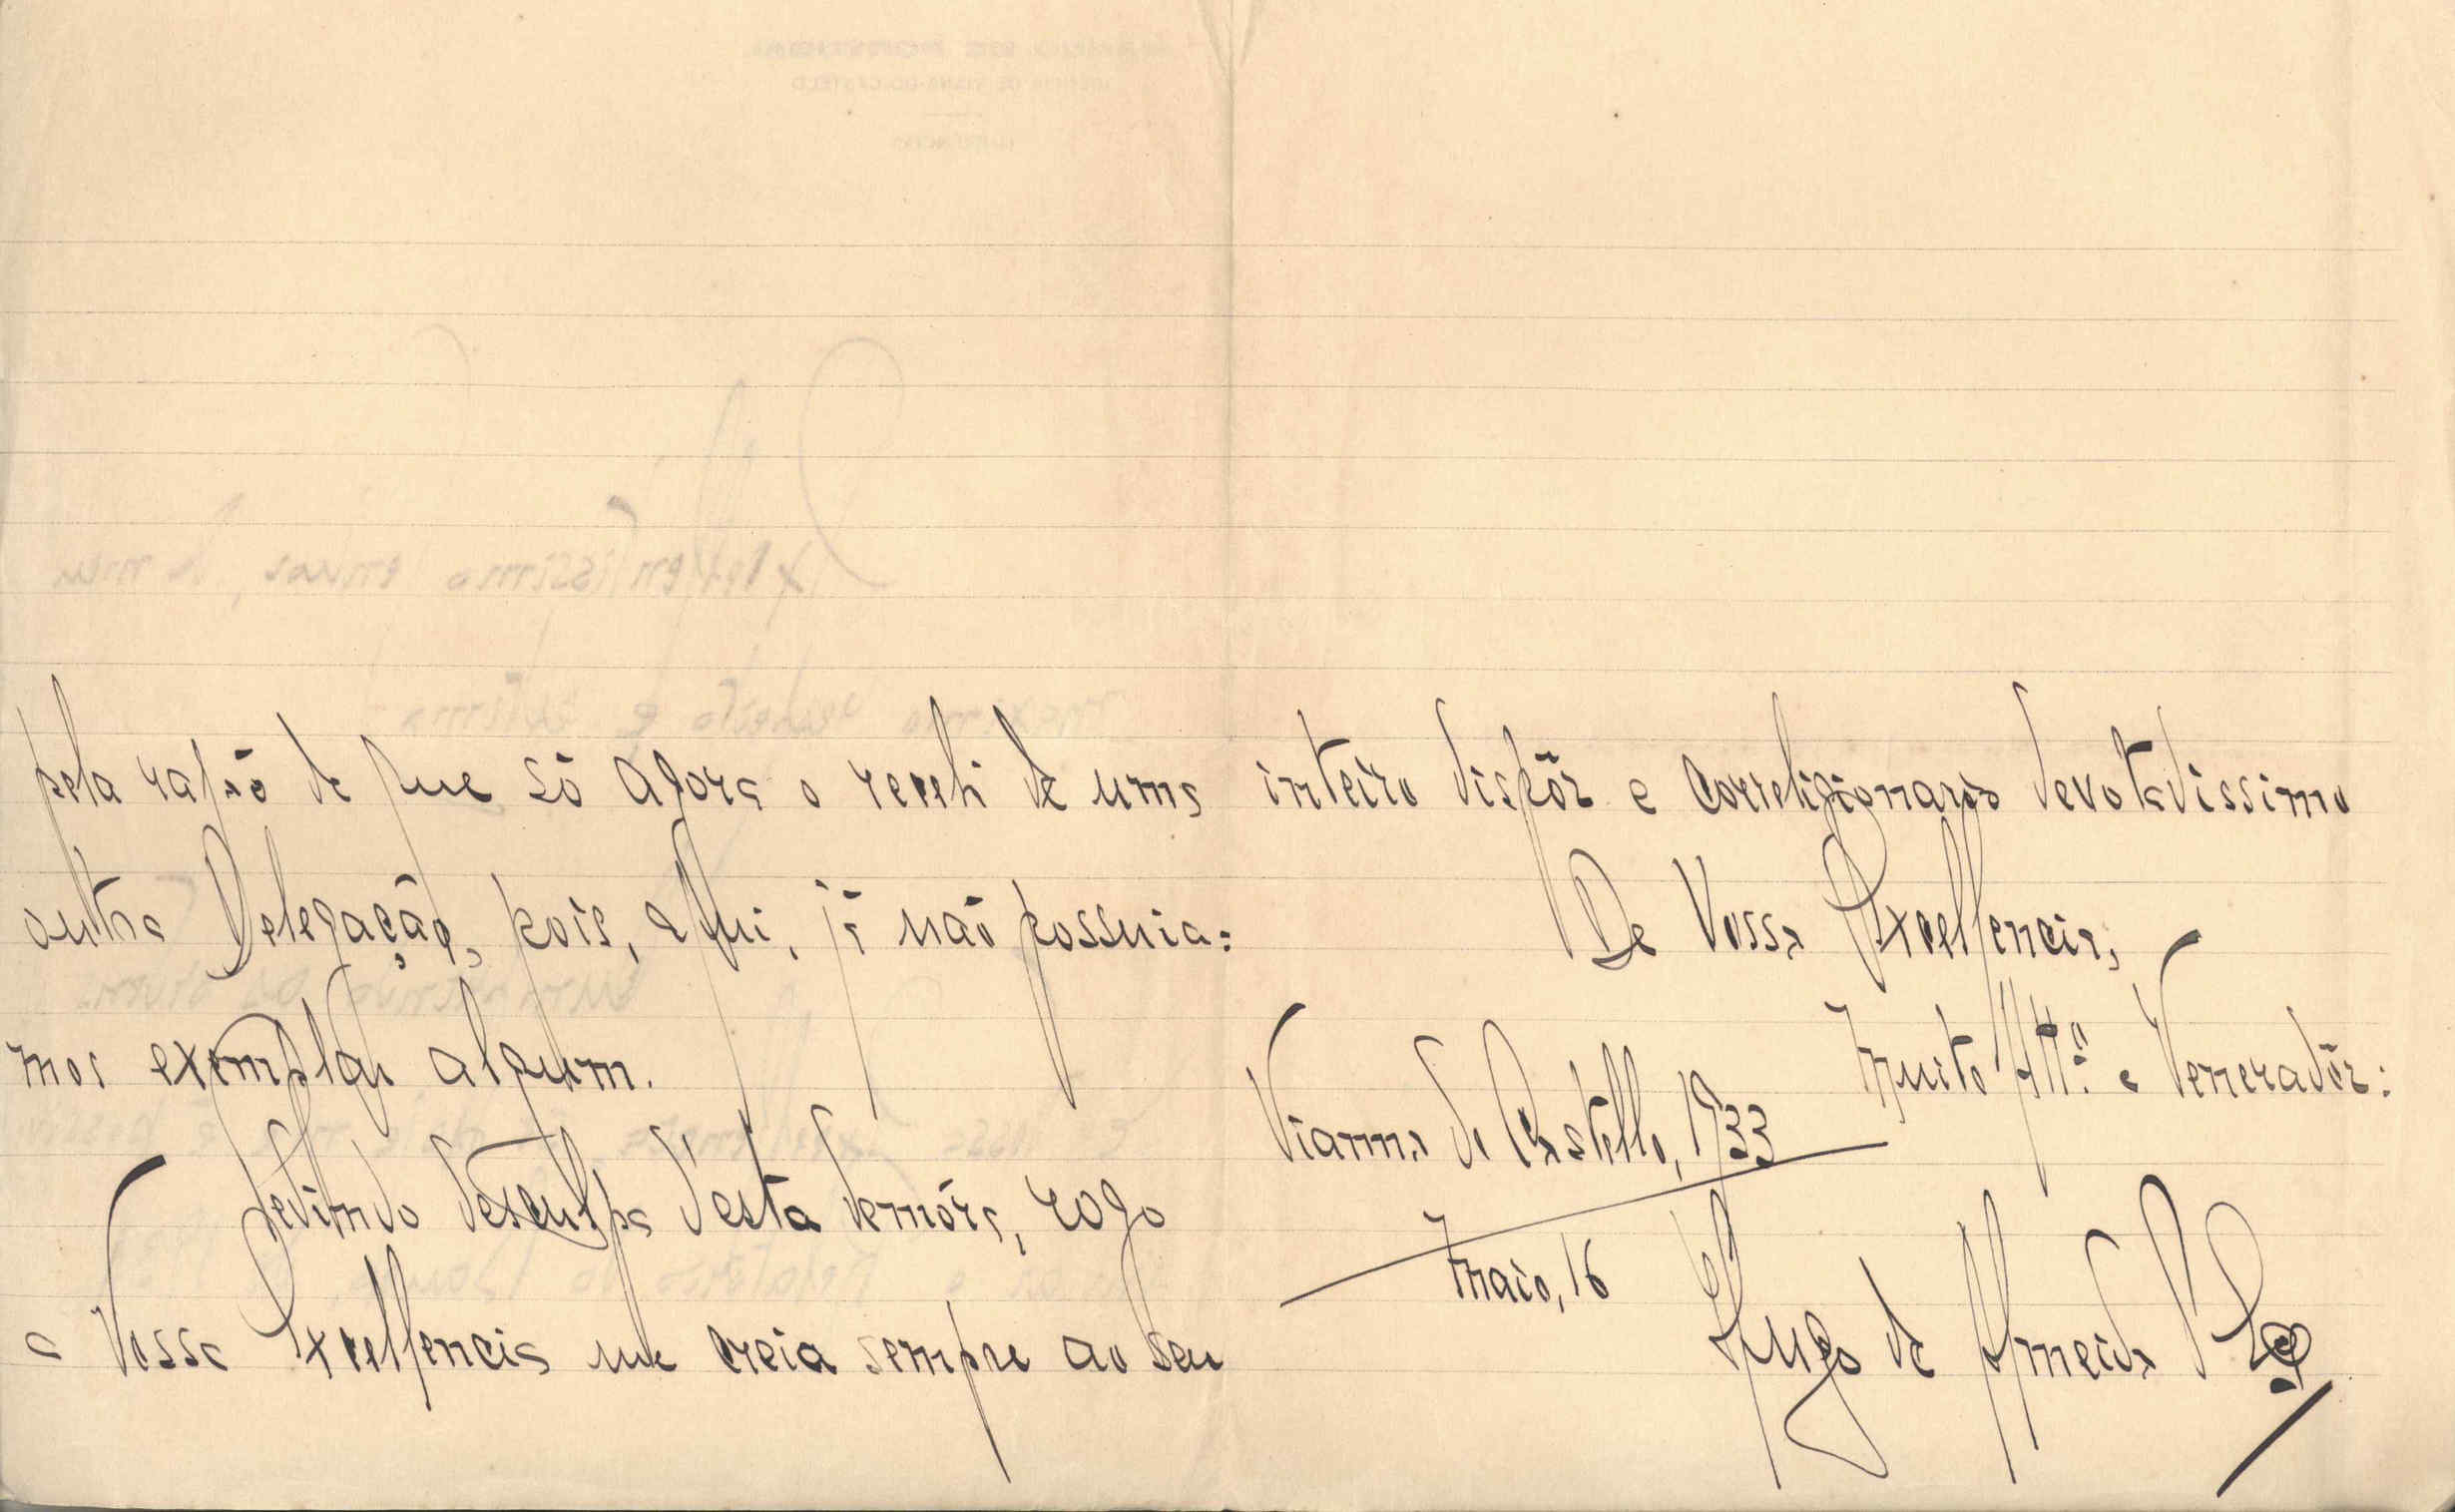 pela razão de que só agora o recebi de uma
outra Delegação, pois, aqui, já não possuia=
mos exemplar algum.
Pedindo desculpa d'esta demóra, rogo
a Vossa Excellencia me creia sempre ao seu
inteiro dispôr e correligionario devotadissimo
De Vossa Excellencia,
Muito Att.º e Veneradôr:
Vianna do Castello, 1933
Maio, 16
Hugo de Almeida